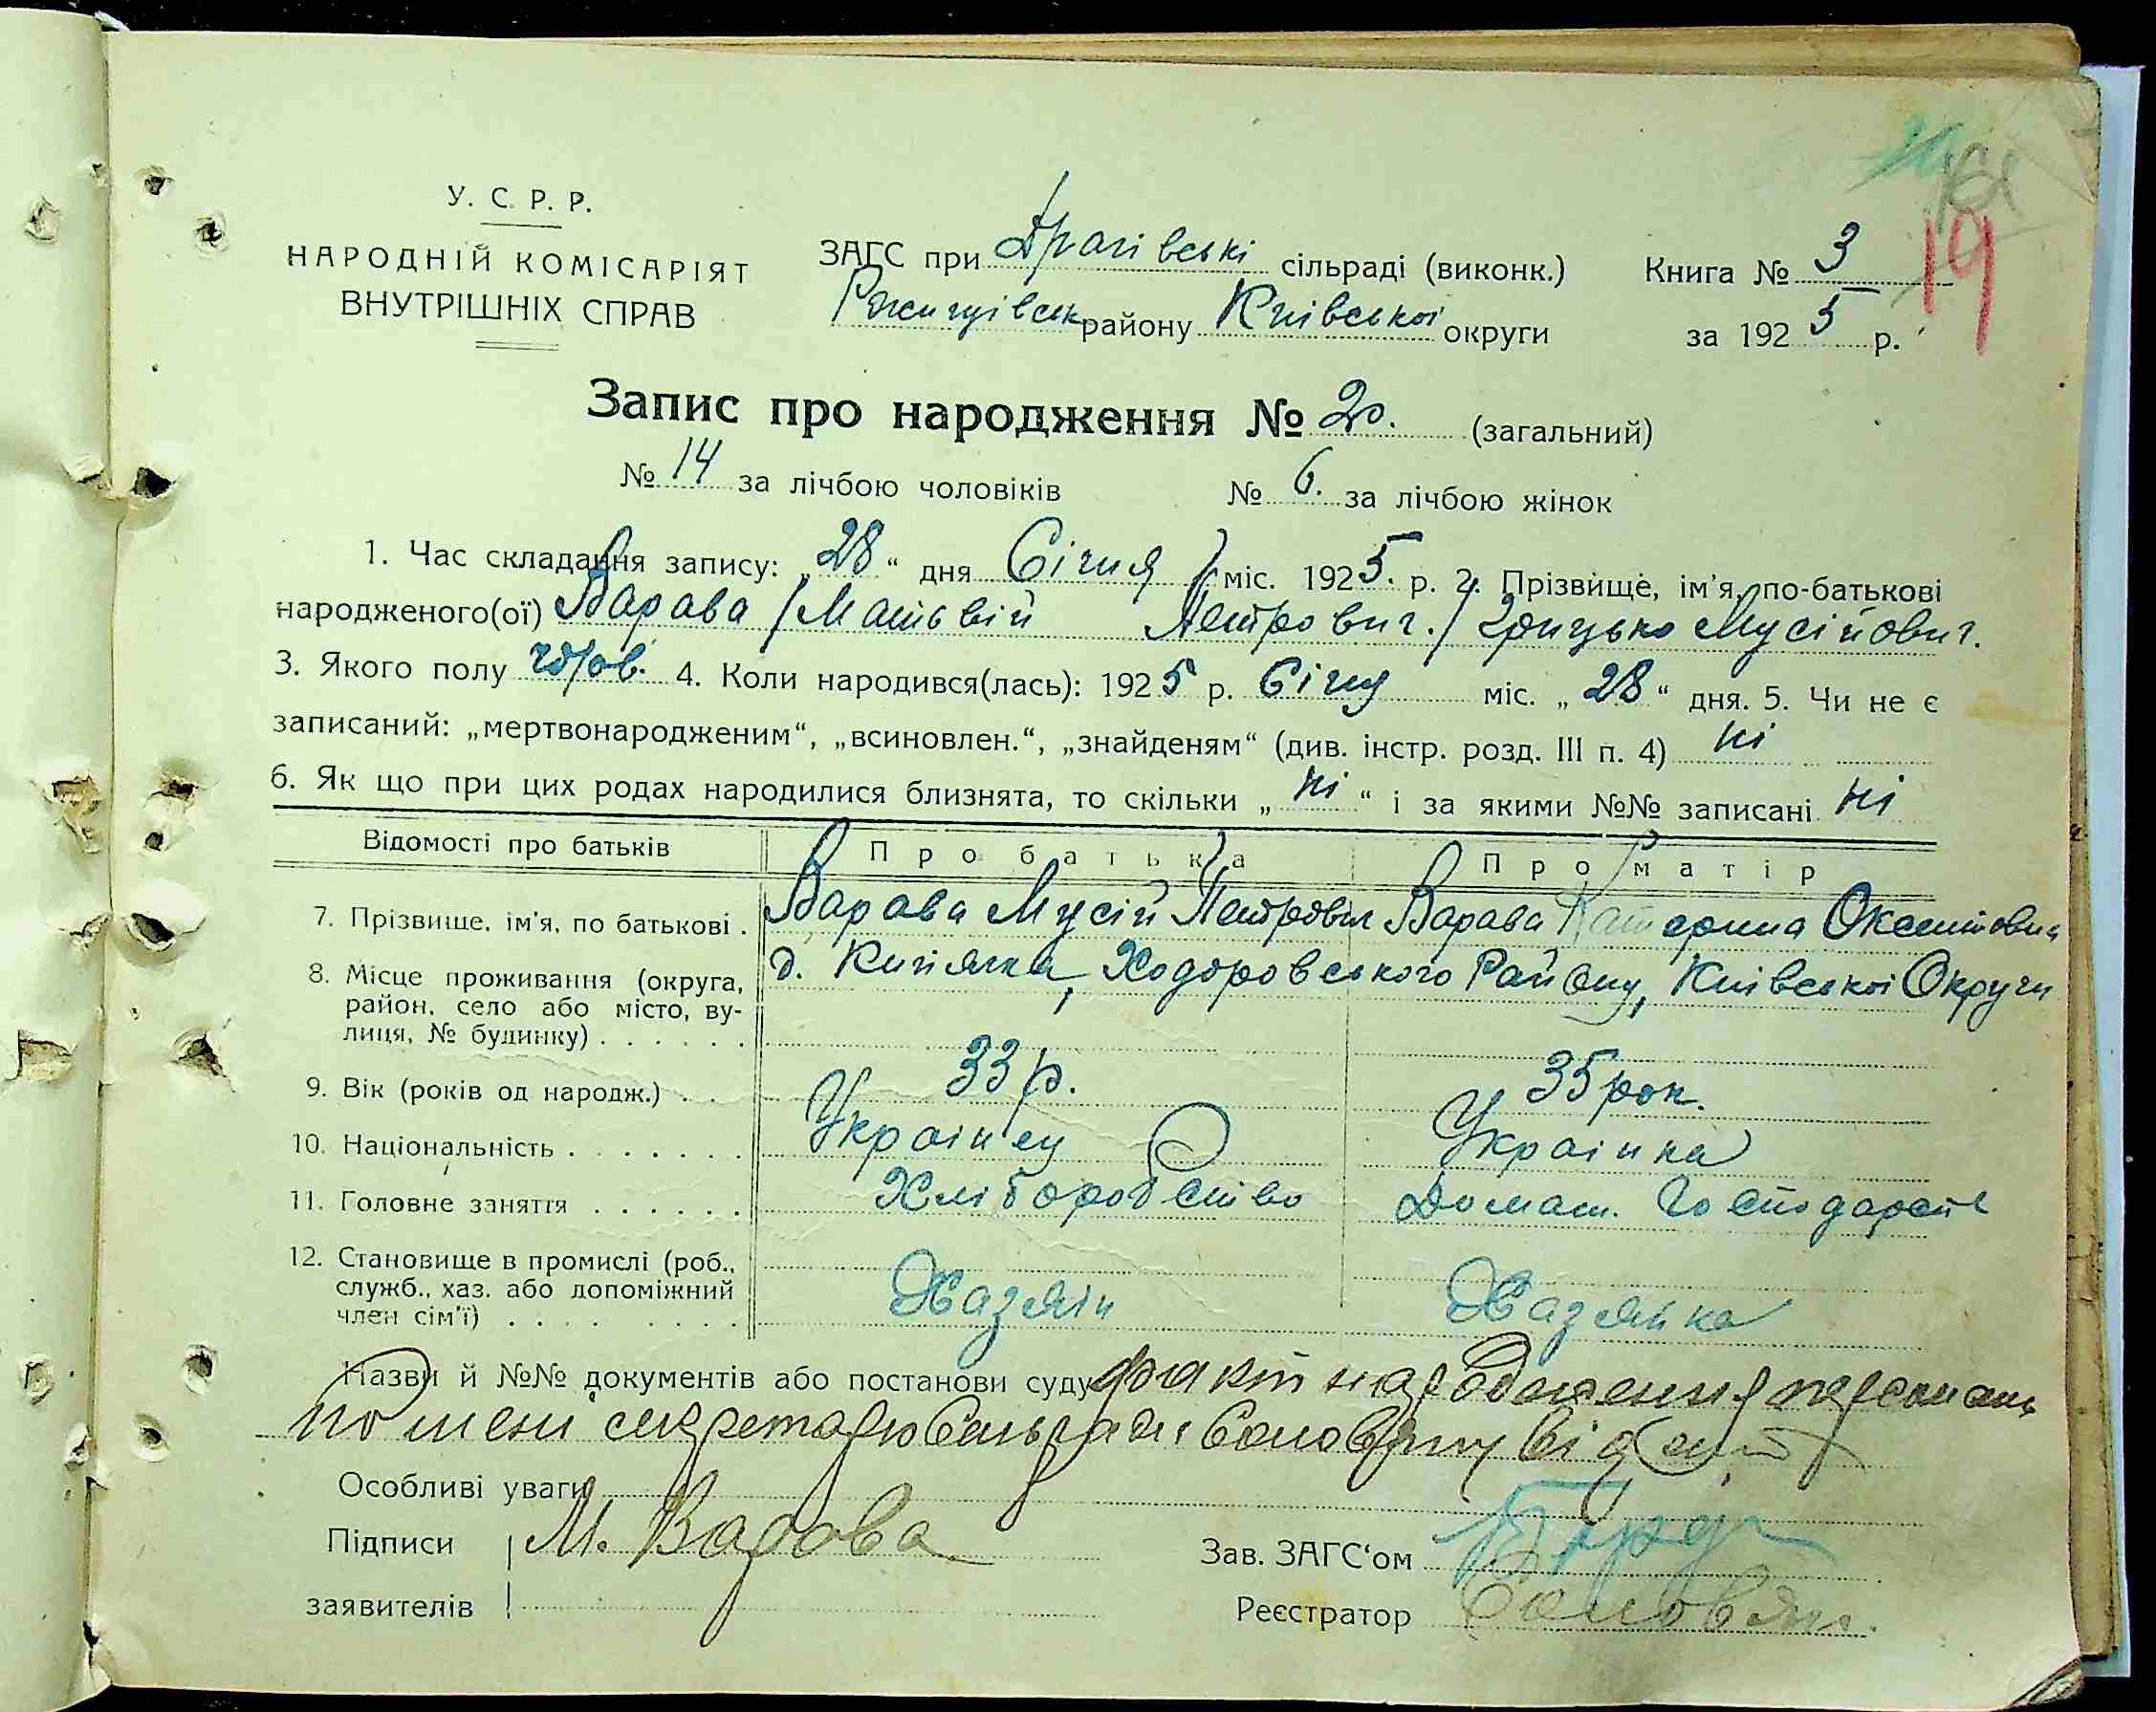 У. С. Р. Р.
НАРОДНІЙ КОМІСАРІЯТ
ВНУТРІШНІХ СПРАВ
ЗАГС при сільраді (виконк.)
району Київської округи
Книга № 3
за 1925 р.
19
Запис про народження № 20. (загальний)
№ 14 за лічбою чоловіків № 6. за лічбою жінок
1. Час складання запису: „28“ дня Січня міс. 1925. р. 2. Прізвище, ім'я, по-батькові
народженого(ої) Варава / Матьвій Петрович. / Грицько Мусійович.
3. Якого полу 4. Коли народився(лась): 1925 р. Січня міс. „28“ дня. 5. Чи не є
записаний: „мертвонародженим“, „всиновлен.“, „знайденям“ (див. інстр. розд. III п. 4) ні
6. Як що при цих родах народилися близнята, то скільки „ні“ і за якими №№ записані ні
Відомості про батьків Про батька Про матір
7. Прізвище, ім'я, по батькові . Варава Мусій Петрович Варава Катерина
8. Місце проживання (округа, район, село або місто, вулиця, № будинку) . . . . . . Ходоровського Району, Київської Округи
9. Вік (років од народж.) . . 33 р. 35 рок.
10. Національність . . . . . . . Українец Українка
11. Головне заняття . . . . . . Хліборобство Домаш. Господарств
12. Становище в промислі (роб., служб., хаз. або допоміжний член сім'ї) . . . . Хазяїн Хазяйка
Назви й №№ документів або постанови суду факт народження
секретарю
Особливі уваги
Підписи М. Варава Зав. ЗАГС'ом
заявителів Реєстратор